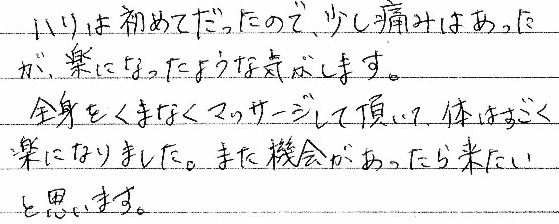 ハリは初めてだったので、少し痛みはあった
が、楽になったような気がします。
全身をくまなくマッサージして頂いて、体はすごく
楽になりました。また機会があったら来たい
と思います。